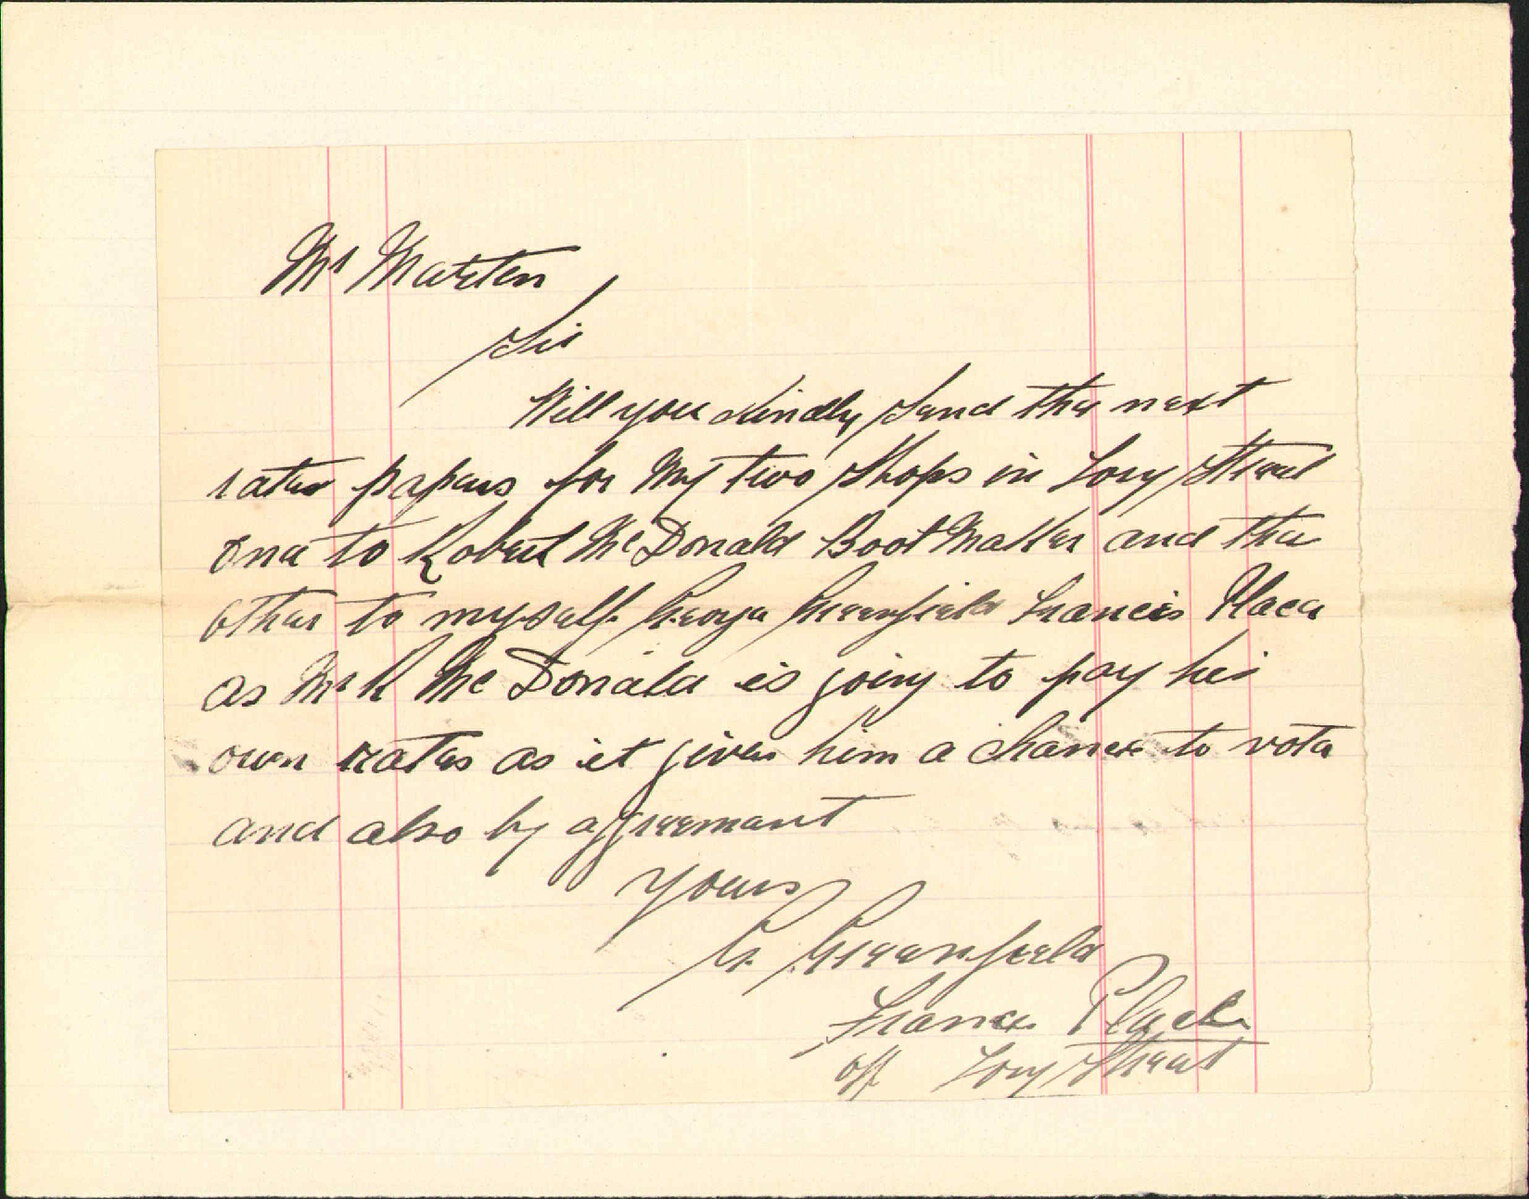 Mr Marten
Sir
Will you Kindly Send the next
rates papers for My two Shops in Tory Street
One to Robert McDonald Boot Maker and the
other to myself. George Greenfield Francis Place
as Mr R McDonald is going to pay his
own rates as it gives him a chance to vote
and also by agreemant
Yours
G. Greenfield
Frances Place
off Tory Street